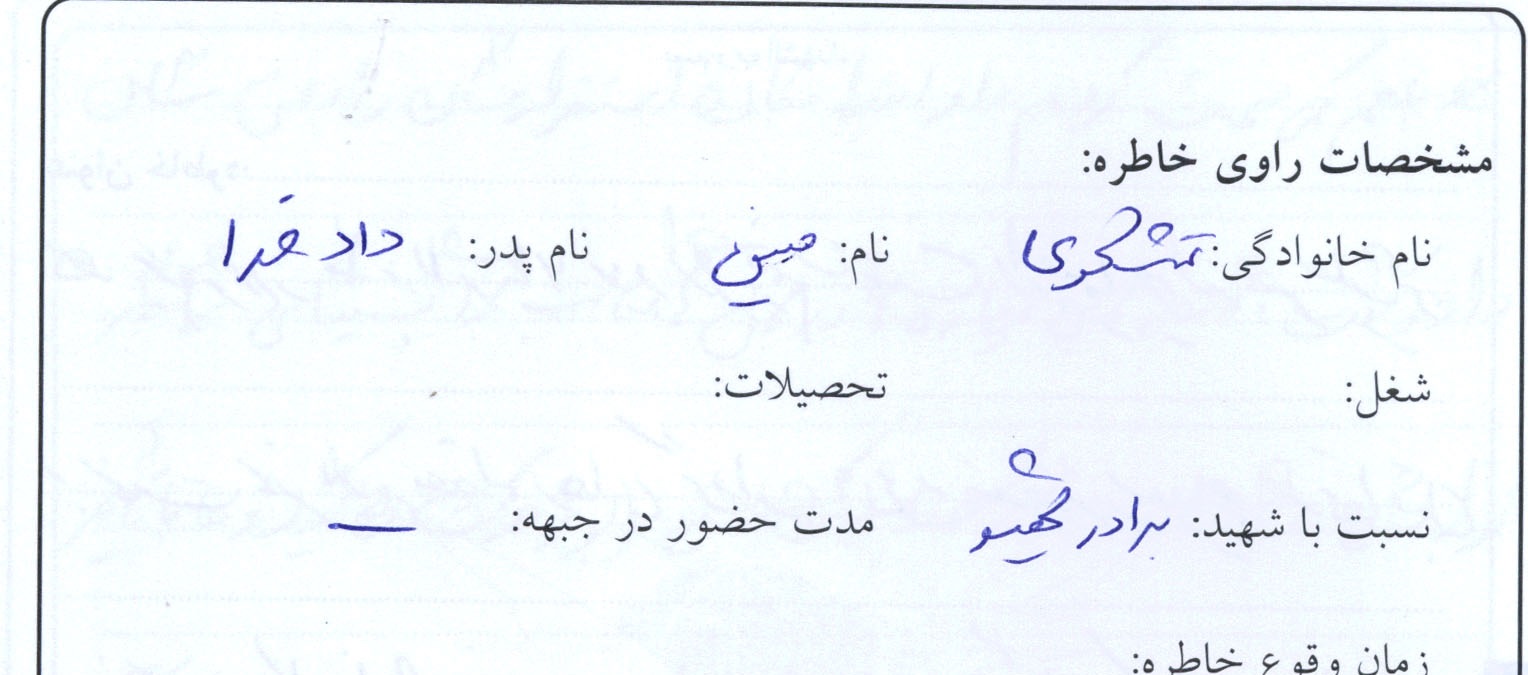 مشخصات راوی خاطره:
نام خانوادگی: تمشکری نام: عیسی نام پدر: داد خدا
شغل: تحصیلات:
نسبت با شهید: برادر شهید مدت حضور در جبهه: —
زمان وقوع خاطره: